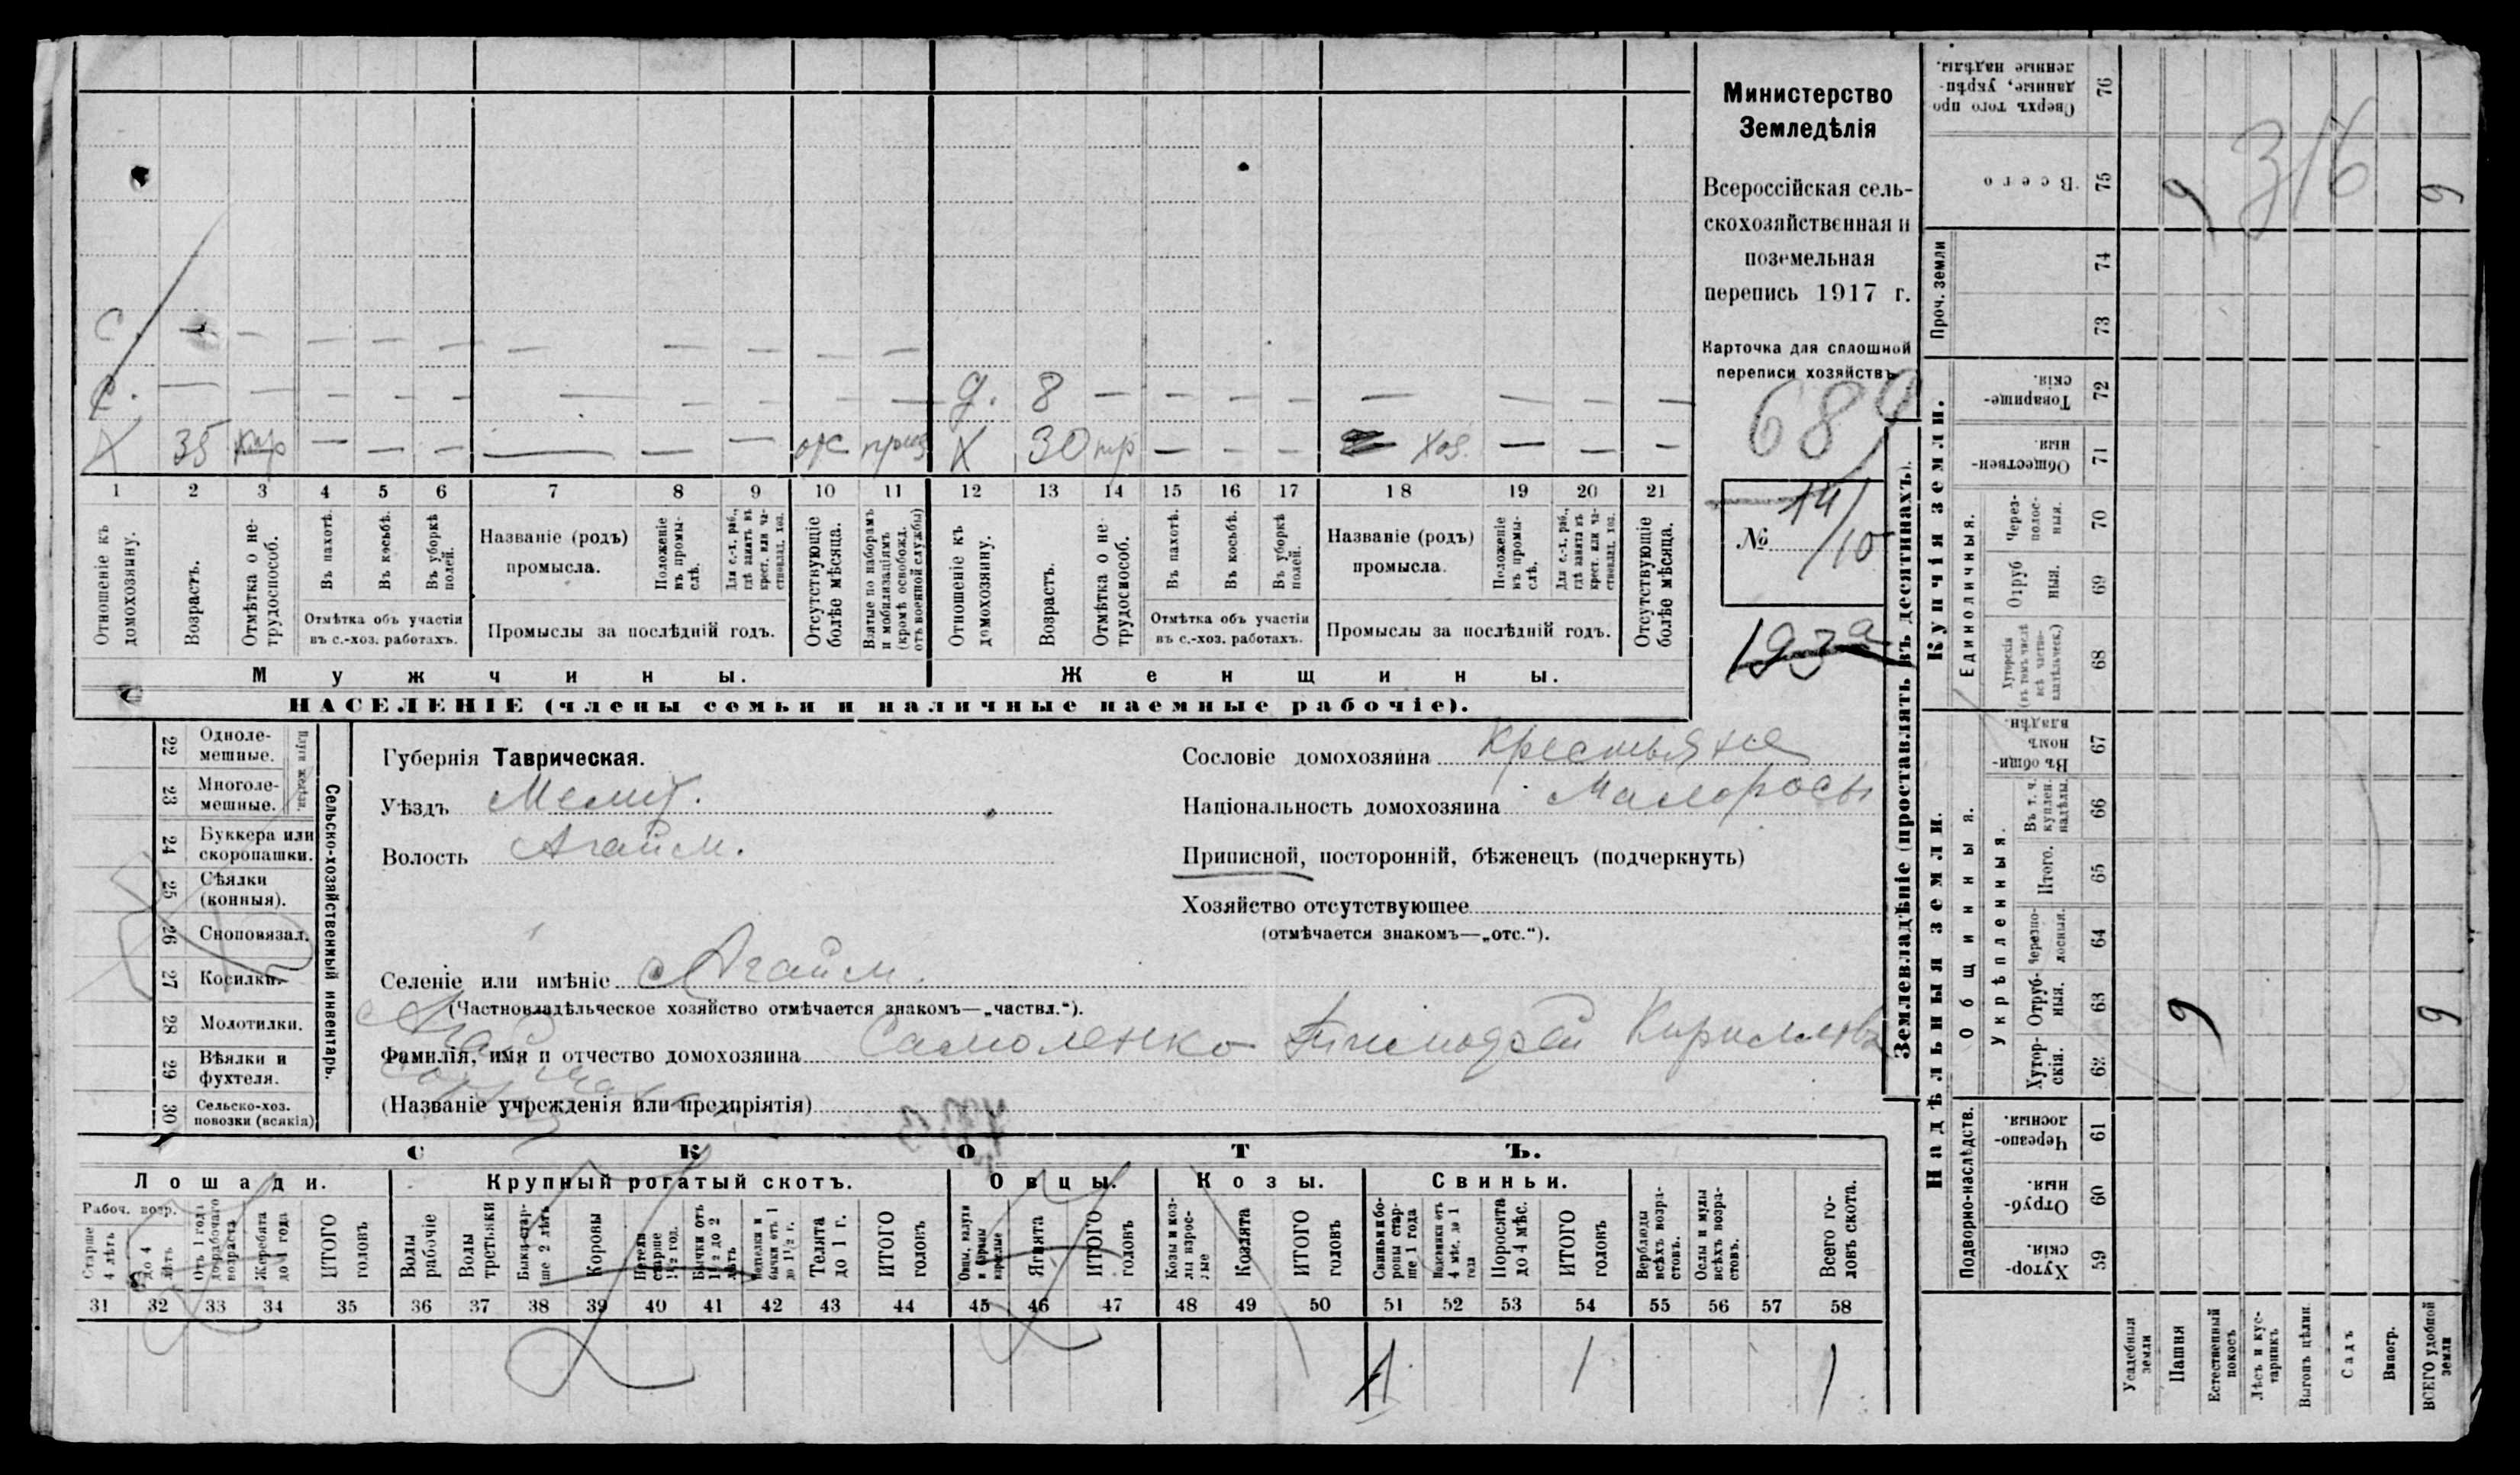 Министерство
Земледѣлія
Всероссійская сель-
скохозяйственная и
поземельная
перепись 1917 г.
Карточка для сплошной
переписи хозяйствъ
689
№ 141/10
193а
С. — — — — — — — — — —
С. — — — — — — — — — — д. 8 — — — — — — — —
Х 35 — — — — — — Х 30 нтр — — — хоз. — — —
1 2 3 4 5 6 7 8 9 10 11 12 13 14 15 16 17 18 19 20 21
Отношеніе къ домохозяину.
Возрастъ.
Отмѣтка о не-трудоспособ.
Въ пахотѣ.
Въ косьбѣ.
Въ уборкѣ полей.
Отмѣтка объ участіи въ с.-хоз. работахъ.
Названіе (родъ) промысла.
Положеніе въ промы-слѣ.
Для с.-х. раб., гдѣ занятъ въ крест. или ча-стновлад. хоз.
Промыслы за послѣдній годъ.
Отсутствующіе болѣе мѣсяца.
Взятые по наборамъ и мобилизаціямъ (кромѣ освобожд. отъ военной службы)
Отношеніе къ домохозяину.
Возрастъ.
Отмѣтка о не-трудоспособ.
Въ пахотѣ.
Въ косьбѣ.
Въ уборкѣ полей.
Отмѣтка объ участіи въ с.-хоз. работахъ.
Названіе (родъ) промысла.
Положеніе въ промы-слѣ.
Для с.-х. раб., гдѣ занята въ крест. или ча-стновлад. хоз.
Промыслы за послѣдній годъ.
Отсутствующіе болѣе мѣсяца.
Мужчины.
Женщины.
НАСЕЛЕНІЕ (члены семьи и наличные наемные рабочіе).
22 Одноле-мешные.
23 Многоле-мешные.
Плуги желѣзн.
24 Буккера или скоропашки.
25 Сѣялки (конныя).
26 Сноповязал.
27 Косилки.
28 Молотилки.
29 Вѣялки и фухтеля.
30 Сельско-хоз. повозки (всякія)
Сельско-хозяйственный инвентарь.
Губернія Таврическая.
Уѣздъ Мелит.
Волость Агайм.
Селеніе или имѣніе с Агайм.
(Частновладѣльческое хозяйство отмѣчается знакомъ—„частвл.“).
Фамилія, имя и отчество домохозяина Самоленко Тимофей Кириллов
(Названіе учрежденія или предпріятія)
Сословіе домохозяина Крестьяне
Національность домохозяина Малоросы
Приписной, посторонній, бѣженецъ (подчеркнуть)
Хозяйство отсутствующее
(отмѣчается знакомъ—„отс.“).
СКОТЪ.
Лошади.
Рабоч. возр.
Старше 4 лѣтъ
до 4 лѣтъ
Отъ 1 года до рабочаго возраста
Жеребята до 1 года
ИТОГО головъ
Крупный рогатый скотъ.
Волы рабочіе
Волы трстьяки
Быки стар-ше 2 лѣтъ
Коровы
Нетели старше 1½ год.
Бычки отъ 1½ до 2 лѣтъ
Нетелки и бычки отъ 1 до 1½ г.
Телята до 1 г.
ИТОГО головъ
Овцы.
Овцы, валухи и бараны взрослые
Ягнята
ИТОГО головъ
Козы.
Козы и коз-лы взрос-лые
Козлята
ИТОГО головъ
Свиньи.
Свиньи и бо-ровы стар-ше 1 года
Подсвинки отъ 4 мѣс. до 1 года
Поросята до 4 мѣс.
ИТОГО головъ
Верблюды всѣхъ возра-стовъ.
Ослы и мулы всѣхъ возра-стовъ.
Всего го-ловъ скота.
31 32 33 34 35 36 37 38 39 40 41 42 43 44 45 46 47 48 49 50 51 52 53 54 55 56 57 58
1 1 1
Землевладѣніе (проставлять въ десятинахъ).
Надѣльныя земли.
Купчія земли.
Проч. земли
Подворно-наслѣдств.
Общинныя.
Укрѣпленныя.
Единоличныя.
Сверхъ того про данные, укрѣп-ленные надѣлы. 76
Всего 75
74
73
Товарище-скія. 72
Обществен-ныя. 71
Через-полос-ныя. 70
Отруб ныя. 69
Хуторскія (въ томъ числѣ всѣ частно-владѣльческ.) 68
Въ общи-номъ владѣн. 67
Въ т. ч. куплен. надѣлы. 66
Итого. 65
Черезпо-лосныя. 64
Отруб-ныя. 63
Хутор-скія. 62
Черезпо-лосныя. 61
Отруб-ныя. 60
Хутор-скія. 59
Усадебныя земли
Пашня
Естественный покосъ
Лѣсъ и кус-тарникъ
Выгонъ цѣлин.
Садъ
Виногр.
ВСЕГО удобной земли
316
9 9
9 9